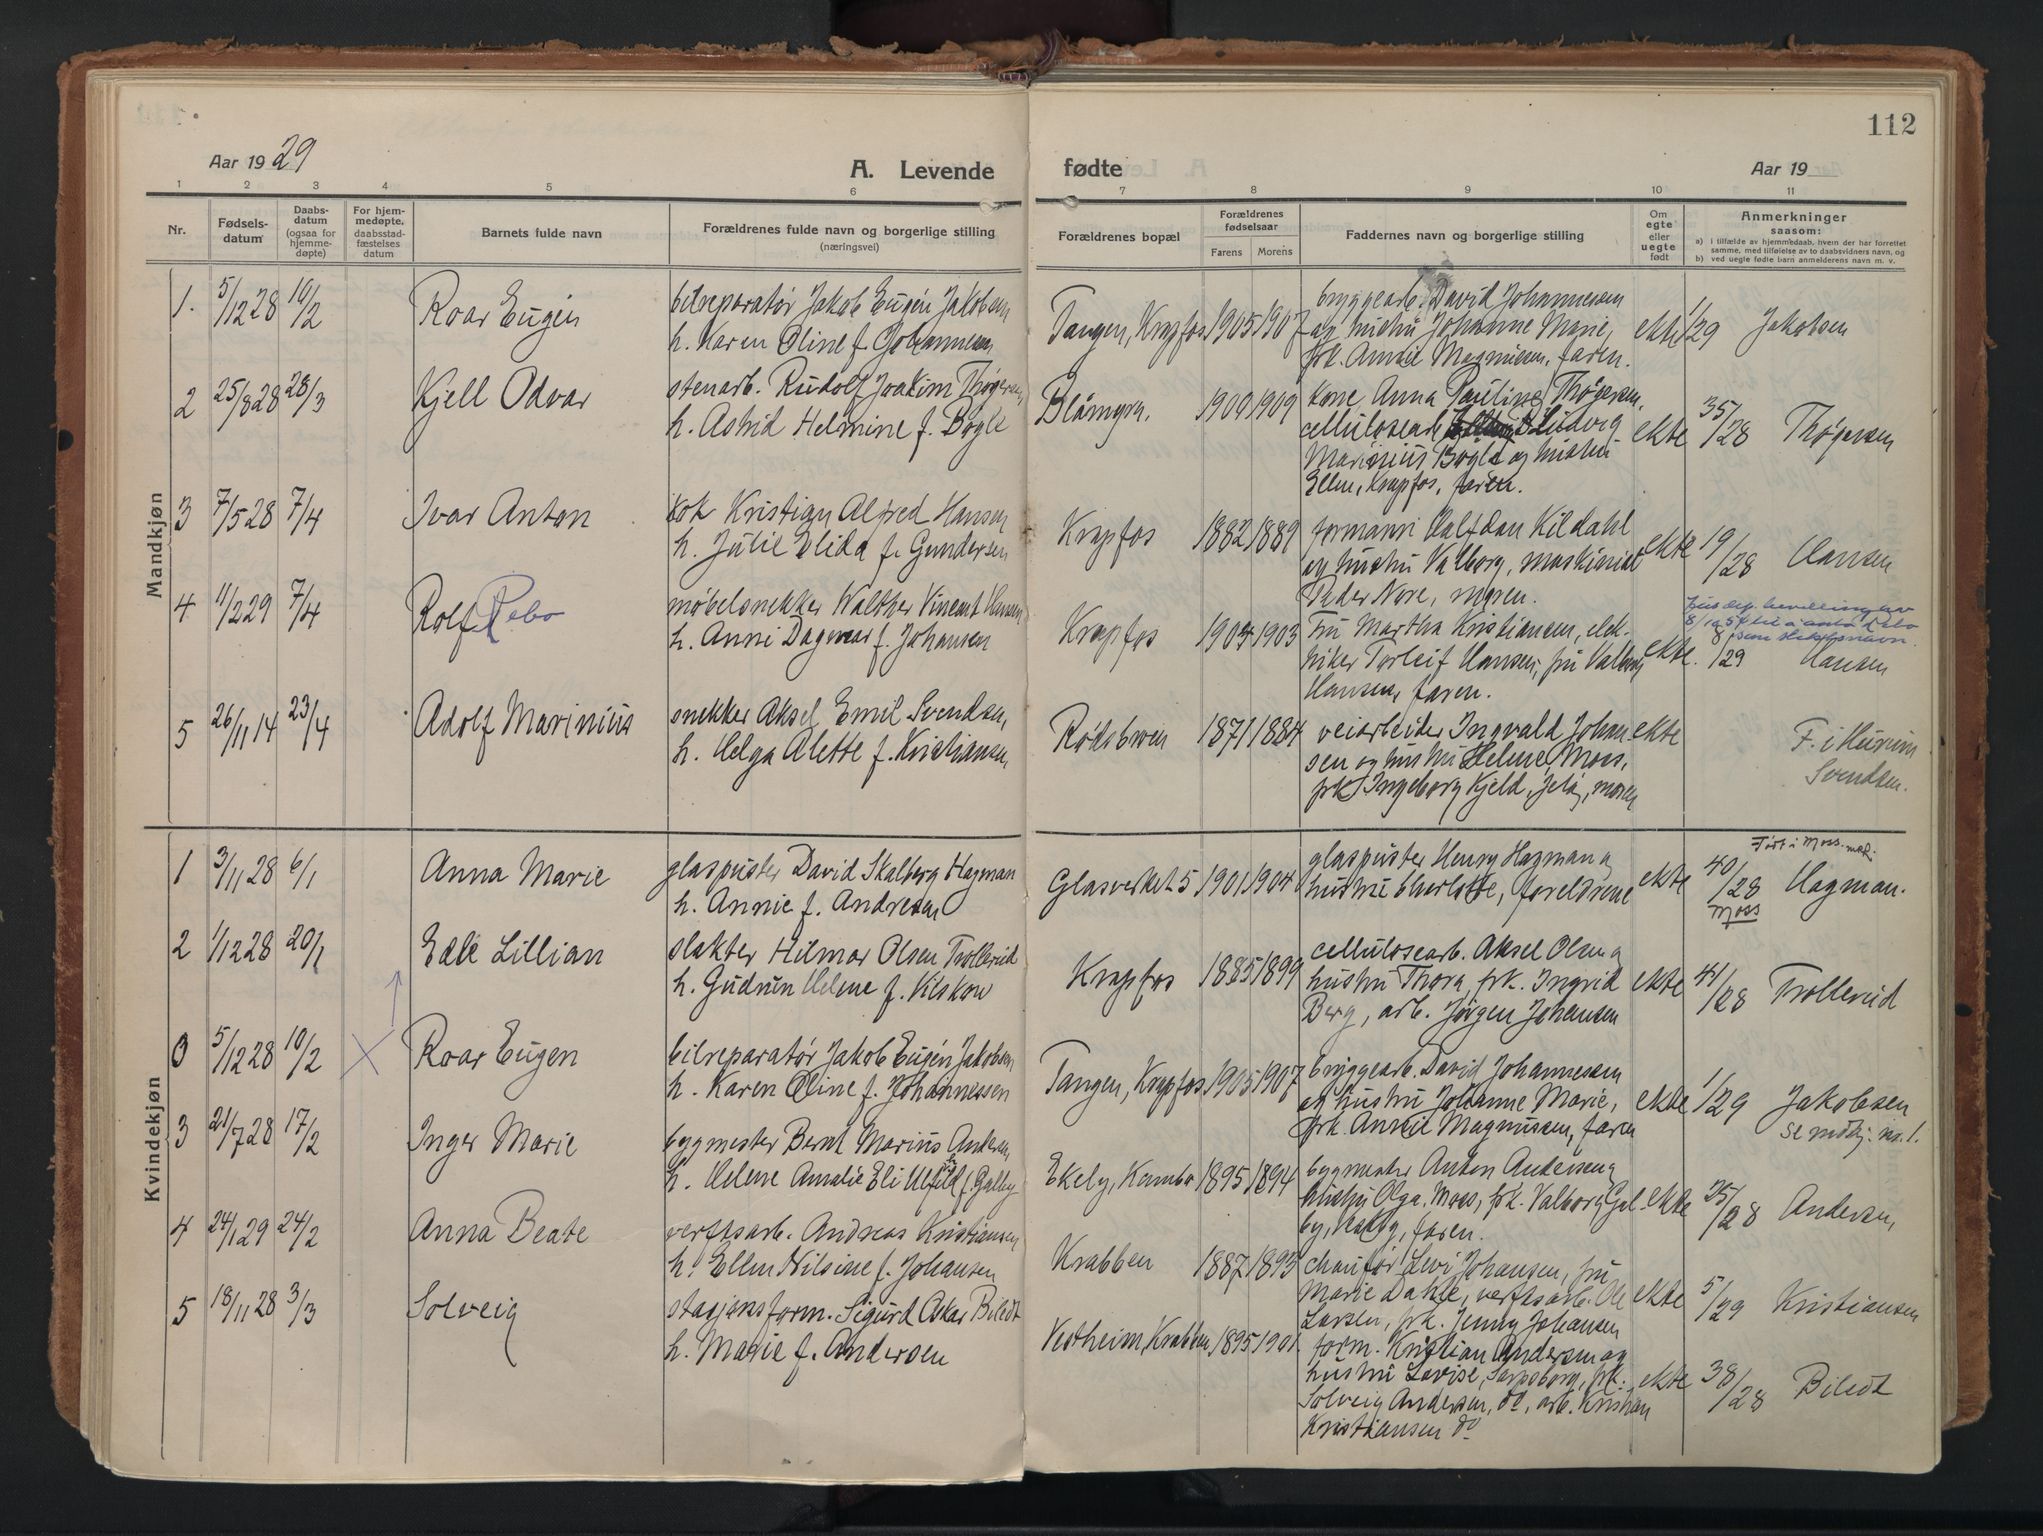 112
Aar 1929
A. Levende
fødte
Aar 19
1 2 3 4 5 6 7 8 9 10 11
Nr.
Fødsels-
datum
Daabs-
datum
(ogsaa for
hjemme-
døpte)
For hjem-
medøpte,
daabsstad-
fæstelses
datum
Barnets fulde navn
Forældrenes fulde navn og borgerlige stilling
(næringsvei)
Forældrenes bopæl
Forældrenes
fødselsaar
Farens Morens
Faddernes navn og borgerlige stilling
Om
egte
eller
uegte
født
Anmerkninger
saasom:
a) i tilfælde av hjemmedaab, hvem der har forrettet
samme, med tilføielse av to daabsvidners navn, og
b) ved uegte fødte barn anmelderens navn m. v.
Mandkjøn
1. 5/12 28 10/2 Roar Eugén
bilreparatør Jakob Eugén Jakobsen
h. Karen Oline f. Johannesen
Tangen, Krapfos 1905 1907
bryggearb. David Johannessen
og hustru Johanne Marie,
frk. Annie Magnussen, faren.
ekte 1/29 Jakobsen
2 25/8 28 28/3 Kjell Odvar
stenarb. Rudolf Joakim Thøgersen,
h. Astrid Helmine f. Bøgle
Blåmyra. 1909 1909
kone Anna Pauline Thøgersen,
cellulosearb. Ludvig
Marinius Bøgle og hustru
Ellen, Krapfos, faren.
ekte 35/28 Thøgersen
3 7/5 28 7/4 Ivar Anton
kok Kristian Alfred Hansen
h. Julie Elida f. Gundersen
Krapfos 1882 1889
formann Halfdan Kildahl
og hustru Valborg, maskinist
Peder Nore, moren.
ekte 19/28 Hansen
4 11/2 29 7/4 Rolf Rebo
møbelsnekker Walther Vincent Hansen
h. Anni Dagmar f. Johansen
Krapfos 1904 1903
Fru Martha Kristiansen, elek-
triker Torleif Hansen, fru Valborg
Hansen, faren.
ekte. 8/29 Hansen
Jus. dep. bevilling av
8/10 54 til å anta Rebo
som slektsnavn.
5 26/11 14 23/4 Adolf Marinius
snekker Aksel Emil Svendsen,
h. Helga Alette f. Kristiansen,
Rødsbroen 1871 1884
veiarbeider Ingvald Johan-
sen og hustru Helene, Moss,
frk. Ingeborg Kjeld, Jeløy, moren
ekte F. i Hurum
Svendsen.
Kvindekjøn
1 3/11 28 6/1 Anna Marie
glaspuster David Skalberg Hagman
h. Annie f. Andresen
Glasverket 5 1901 1904
glaspuster Henry Hagman og
hustru Charlotte, foreldrene
ekte 40/28 Moss Hagman.
Født i Moss
2 1/12 28 20/1 Edle Lillian
slakter Hilmar Olsen Trollerud
h. Gudrun Helene f. Vilskow
Krapfos 1885 1899
cellulosearb. Aksel Olsen og
hustru Thora, frk. Ingrid
Berg, arb. Jørgen Johansen
ekte 41/28 Trollerud
0 5/12 28 10/2 X Roar Eugen
bilreparatør Jakob Eugén Jakobsen
h. Karen Oline f. Johannessen
Tangen, Krapfos 1905 1907
bryggearb. David Johannessen
og hustru Johanne Marie,
frk. Annie Magnussen, faren
ekte 1/29 Jakobsen
se mdkj. nr. 1.
3 21/7 28 17/2 Inger Marie
bygmester Bernt Marius Andersen
h. Helene Amalie Eli Ulfild f. Galby
Ekely, Kambo 1895 1894
bygmester Anton Andersen og
hustru Olga, Moss, frk. Valborg Gal-
by, faren.
ekte 25/28 Andersen,
4 24/1 29 24/2 Anna Beate
verftsarb. Andreas Kristiansen
h. Ellen Nilsine f. Johansen
Krabben 1887 1893
chaufør Levi Johansen, fru
Marie Dahle, verftsarb. Ole
Larsen, frk. Jenny Johansen
ekte 5/29 Kristiansen
5 18/11 28 3/3 Solveig
stasjonsform. Sigurd Oskar Biledt
h. Marie f. Andersen
Vestheim, Krabben 1895 1901
form. Kristian Andersen og
hustru Lovise, Sarpsborg, frk.
Solveig Andersen, do, arb. Kristian
Kristiansen do
ekte 38/28 Biledt